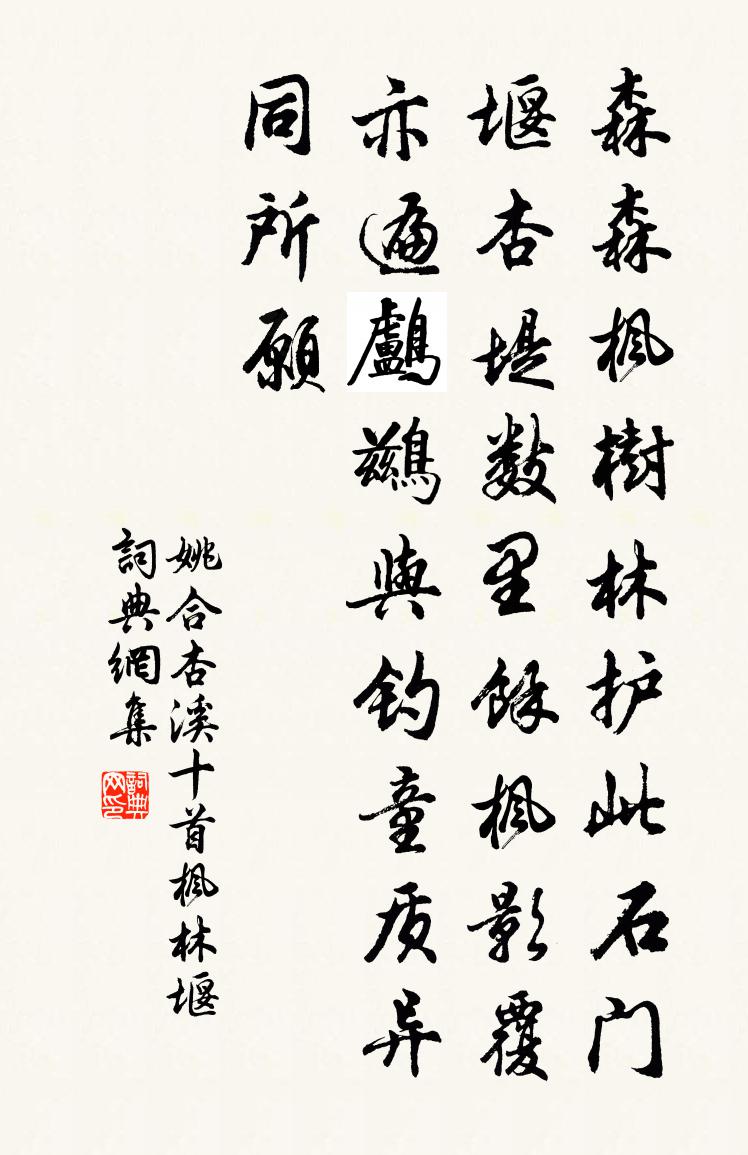 森森楓樹林护此石门
堰杏堤数里餘楓影覆
亦遍鸕鷀與钓童质异
同所願
姚合杏溪十首楓林堰
詞典網集
詞典网印